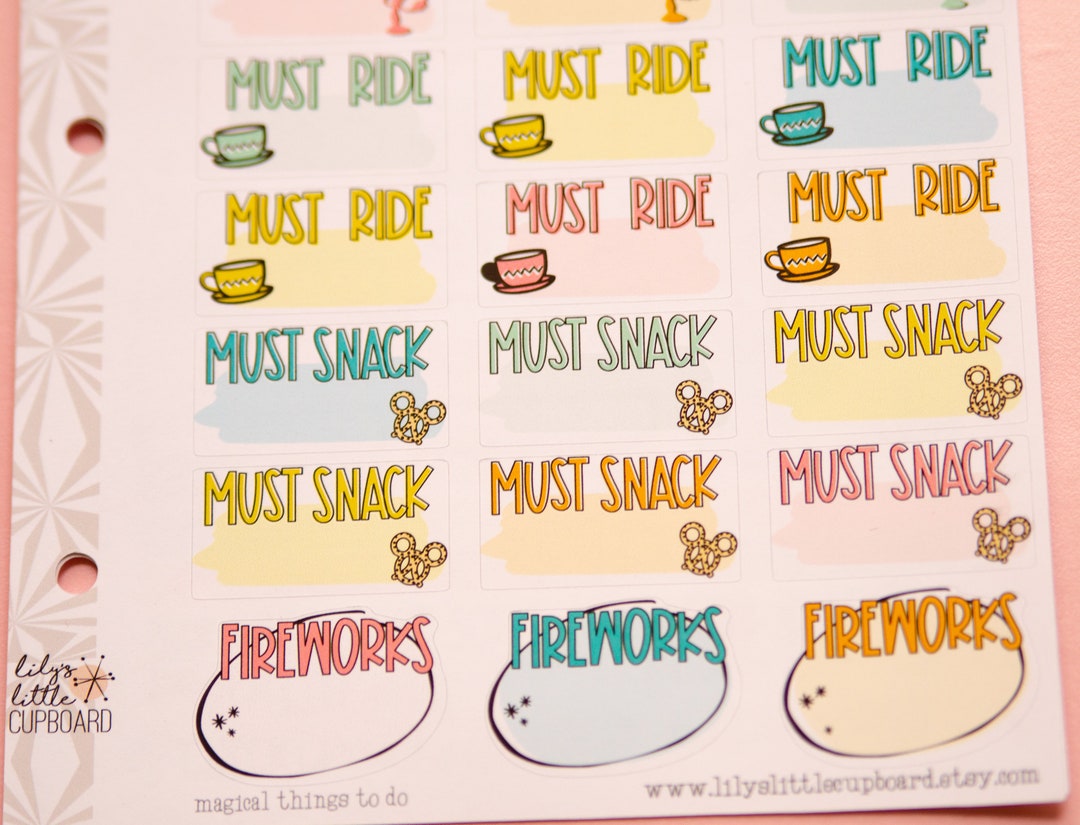 MUST RIDE
MUST RIDE
MUST RIDE
MUST RIDE
MUST RIDE
MUST RIDE
MUST SNACK
MUST SNACK
MUST SNACK
MUST SNACK
MUST SNACK
MUST SNACK
FIREWORKS
FIREWORKS
FIREWORKS
lily's
little
CUPBOARD
magical things to do
www.lilyslittlecupboard.etsy.com